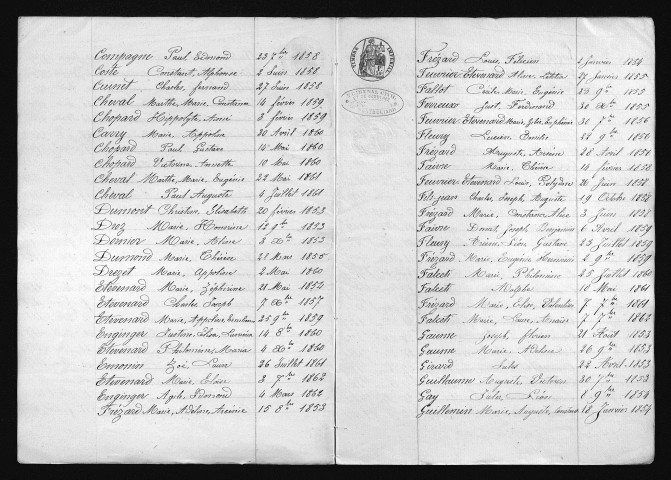 Compagne Paul Edmond 23 7bre 1858
Coste Constant, Alphonse 2 Juin 1858
Cuenet Charles, fernand 27 Juin 1858
Cheval Marthe, Marie, 14 février 1859
Chopard Hippolyte, Aimé 3 février 1859
Cavry Marie, Appoline 30 Avril 1860
Chopard Paul Gustave 14 Mai 1860
Chopard 10 Mai 1860
Cheval Marthe, Marie, Eugénie 22 Mai 1861
Cheval Paul Auguste 4 Juillet 1861
Dumont Christine, Elizabeth 20 février 1853
Droz Marie, Honorine 12 9bre 1853
Marie, Aline 3 Xbre 1853
Dumond Marie, Thérèse 21 Mars 1855
Marie, Appoline 2 Mai 1860
Etevenard Marie, Zéphirine 21 Mai 1852
Etevenard Charles Joseph 7 Xbre 1857
Etevenard Marie, Appoline 25 9bre 1859
Enginger Justine, 14 8bre 1860
Etevenard Philomène, Maria 4 Xbre 1860
Emonin Zoé, Laure 26 Juillet 1861
Etevenard Marie, Elise 3 7bre 1862
Enginger 4 Mars 1862
Frézard Marie, Adeline, Arsénie 15 8bre 1853
Frézard Louis, Félicien 2 Janvier 1854
Feuvrier Etevenard 27 Janvier 1855
Fallot Cécile Marie, Eugénie 23 9bre 1855
Just, Ferdinand 30 Xbre 1855
Feuvrier Etevenard Marie, 30 7bre 1856
Fleury Lucien, Emile 28 9bre 1856
Frézard Auguste, Arsène 28 Avril 1854
Faivre Marie, Thérèse 14 février 1858
Feuvrier Etevenard Louis, 20 Juin 1858
Charles, Joseph, Auguste 19 Octobre 1858
Frézard Marie, Constance, Alice 3 Juin 1858
Faivre Donat, Joseph, Benjamin 6 Avril 1859
Fleury Arsène, Léon, Gustave 23 Juillet 1859
Frézard Marie, Eugénie 2 9bre 1859
Marie, Philomène 25 Juillet 1860
Adolphe 10 Mai 1861
Frézard Marie, Elise, 7 7bre 1861
Marie, Laure, 7 1862
Gaume Joseph, florian 21 Août 1853
Gaume Marie, Adeline 26 9bre 1853
Girard Jules 24 Avril 1853
Guillaume Auguste, 30 7bre 1853
Gay Jules, Léon 8 9bre 1854
Guillemin Marie, Auguste, Constant 18 Janvier 1854